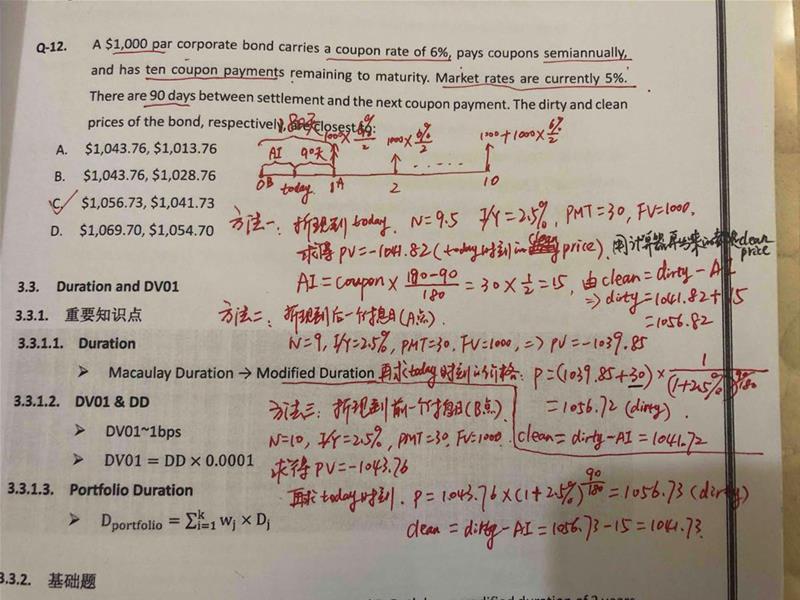 Q-12. A $1,000 par corporate bond carries a coupon rate of 6%, pays coupons semiannually,
and has ten coupon payments remaining to maturity. Market rates are currently 5%.
There are 90 days between settlement and the next coupon payment. The dirty and clean
prices of the bond, respectively, are closest to:
180天
1000×6%/2
1000×6%/2
1000+1000×6%/2
AI 90天
0B today 1A 2 10
A. $1,043.76, $1,013.76
B. $1,043.76, $1,028.76
C. $1,056.73, $1,041.73
D. $1,069.70, $1,054.70
方法一: 折现到today. N=9.5 I/Y=2.5%, PMT=30, FV=1000.
求得PV=-1041.82(today时刻的clean price). 用计算器算出来的都是clean price
AI=coupon×(180-90)/180=30×1/2=15, 由clean=dirty-AI
⇒dirty=1041.82+15
=1056.82
3.3. Duration and DV01
3.3.1. 重要知识点
方法二: 折现到后一个付息日(A点).
N=9, I/Y=2.5%, PMT=30, FV=1000, ⇒PV=-1039.85
3.3.1.1. Duration
➢ Macaulay Duration → Modified Duration
再求today时刻的价格: P=(1039.85+30)×1/(1+2.5%)^90/180
=1056.72(dirty).
clean=dirty-AI=1041.72
3.3.1.2. DV01 & DD
➢ DV01~1bps
➢ DV01 = DD × 0.0001
方法三: 折现到前一个付息日(B点).
N=10, I/Y=2.5%, PMT=30, FV=1000.
求得PV=-1043.76
再求today时刻. P=1043.76×(1+2.5%)^90/180=1056.73(dirty)
clean=dirty-AI=1056.73-15=1041.73
3.3.1.3. Portfolio Duration
➢ D_portfolio = ∑ᵏⱼ₌₁ wⱼ × Dⱼ
3.3.2. 基础题